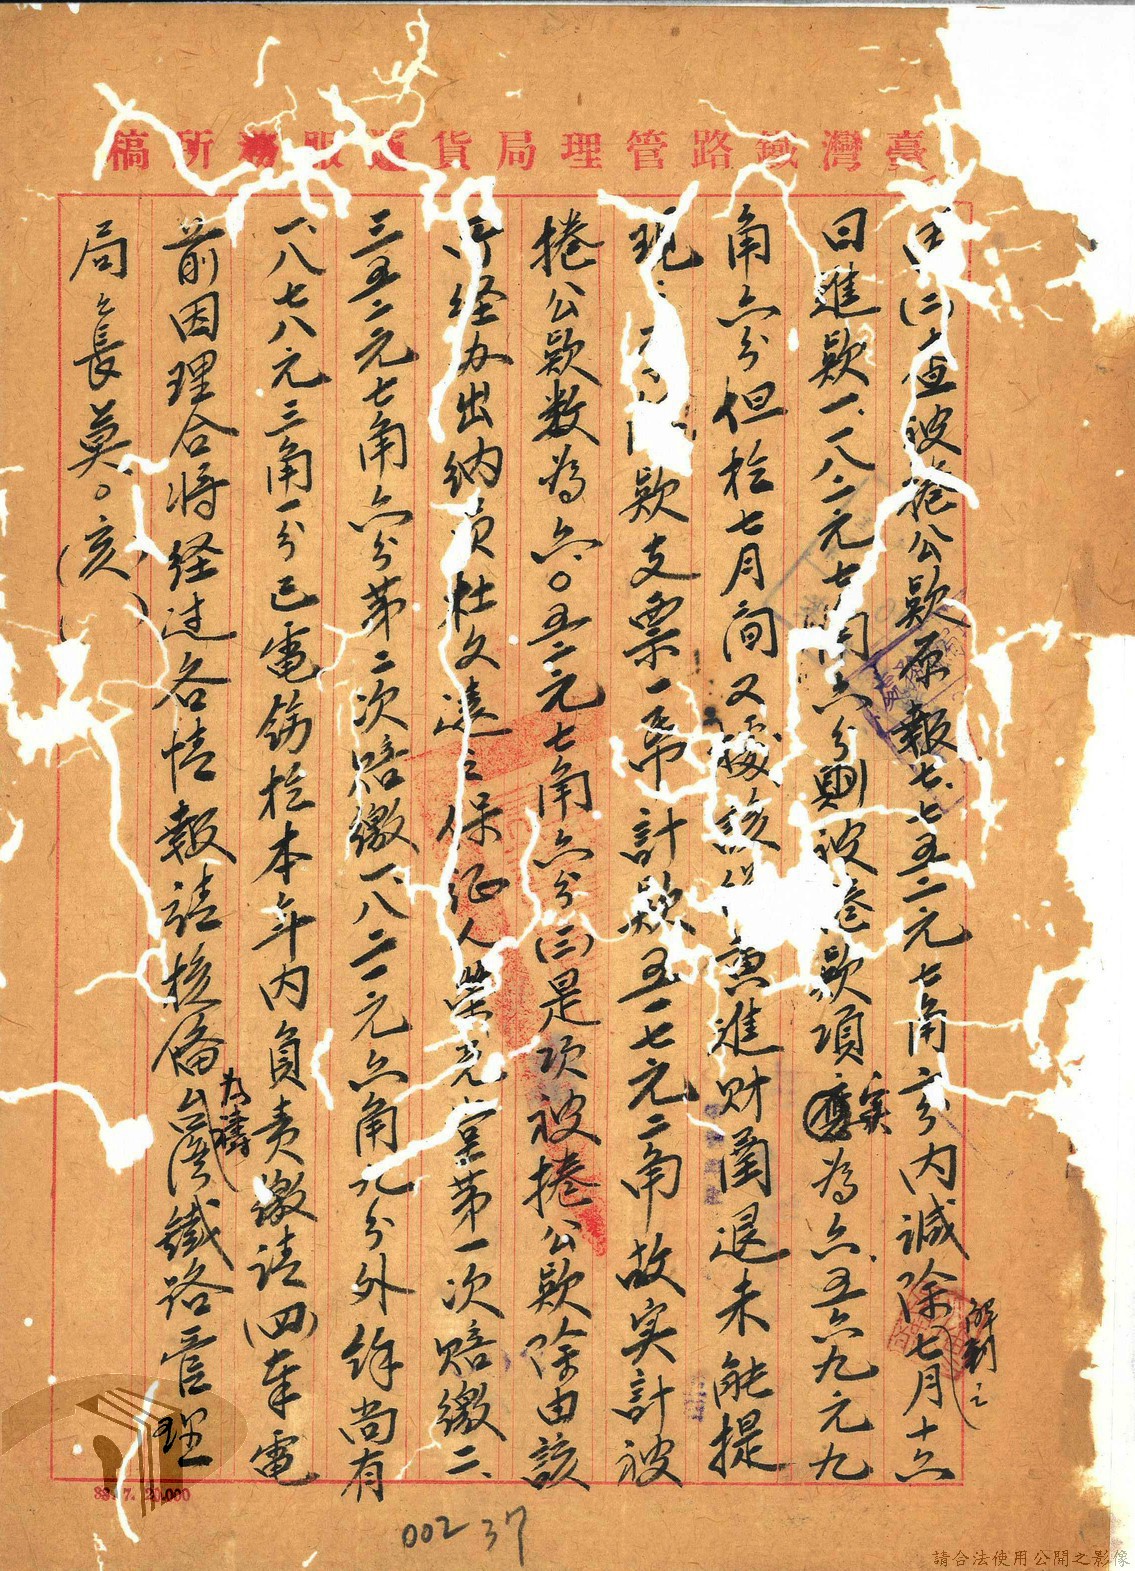 臺灣鐵路管理局貨運服務所稿
(二)查被捲公款原報七、七五二元七角六分內減除七月十六
解到之
日進款一、一八二元七角六分則被捲款項實為六、五六九元九
角六分但於七月間又據該 進財圖退未能提
現 款支票一帋計款五一七元二角故实計被
捲公款数為六、〇五二元七角六分(三)是項被捲公款除由該
所经办出纳員杜文遠之保证人 第一次賠繳二、
三五二元七角六分第二次賠繳一、八二一元六角九分外餘尚有
一、八七八元三角一分已電飭於本年內負责繳清(四)奉電
前因理合将经过各情報請核俻
為禱
台灣鐵路管理
局長莫〇亥
( )
39.7.20.000
002 37
請合法使用公開之影像